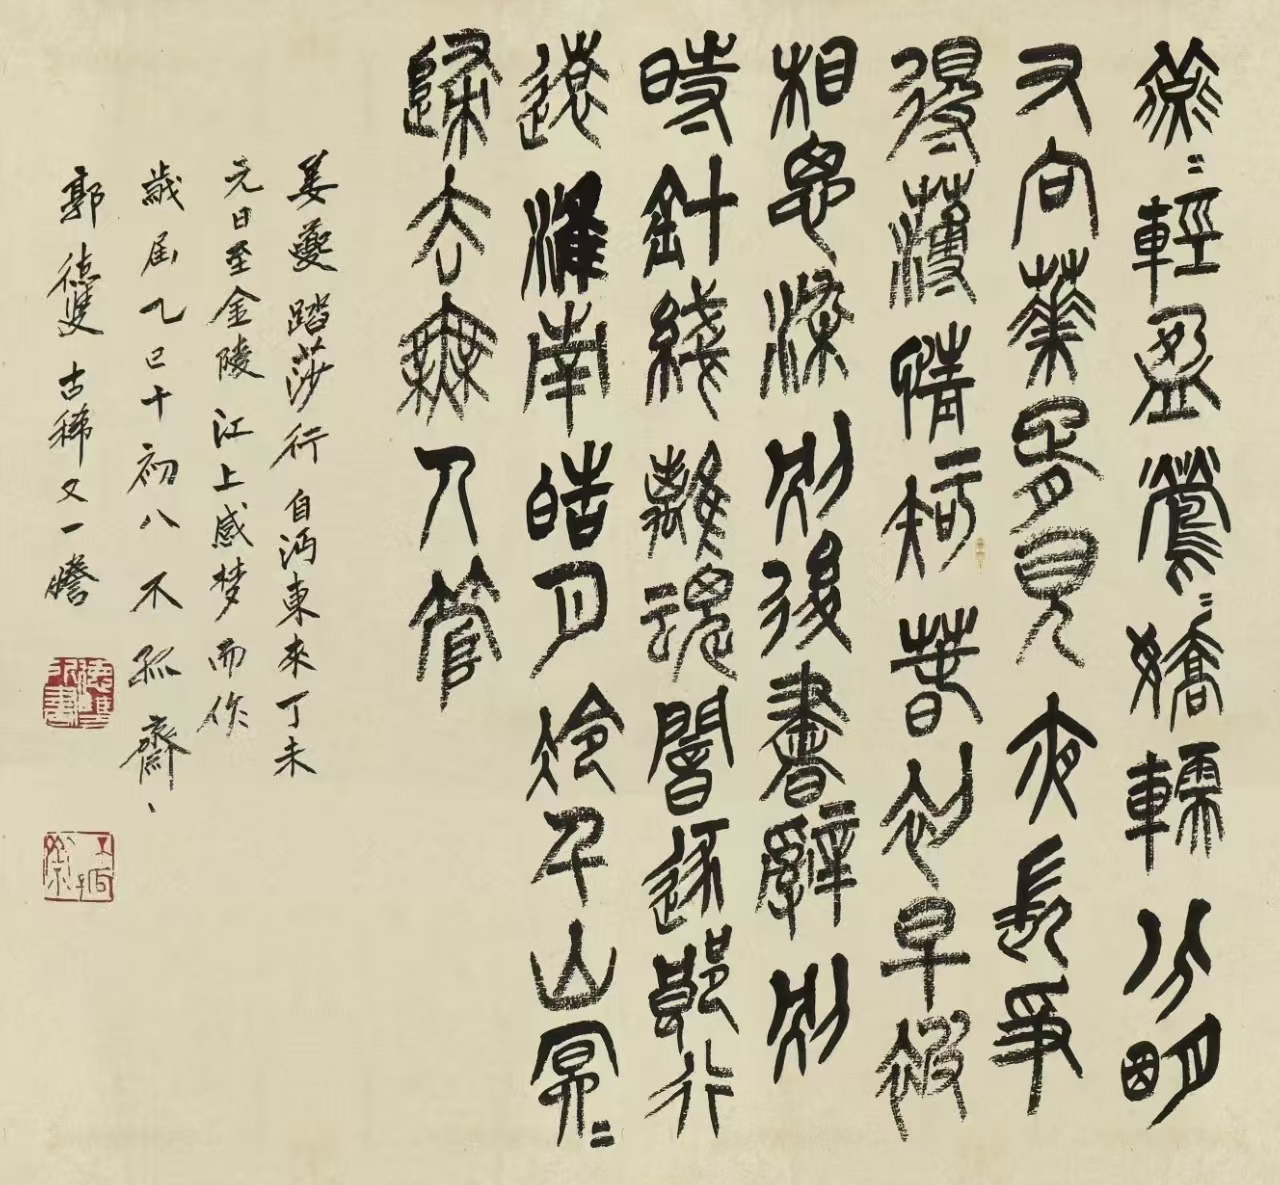 燕〻輕盈鶯〻嬌輭分明
又向華胥見夜長爭
得薄情知春初早被
相思染別後書辭別
時針綫離魂闇逐郎行
遠淮南皓月冷千山冥〻
歸去無人管
姜夔踏莎行 自沔東來丁未
元日至金陵江上感梦而作
歲届乙巳十初八不孤齋、
郭德雙古稀又一